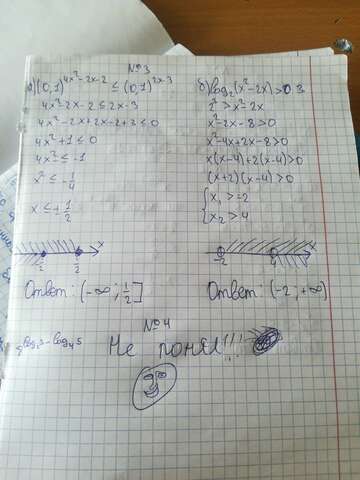 №3
а)(0,1)^4x²-2x-2 ≤ (0,1)^2x-3
4x²-2x-2 ≤ 2x-3
4x²-2x+2x-2+2 ≤ 0
4x²+1 ≤ 0
4x² ≤ -1
x² ≤ -1/4
x ≤ ±1/2
x
1/2
Ответ: (-∞; 1/2]
б) log₂(x²-2x) > 3
2³ > x²-2x
x²-2x-8 > 0
x²-4x+2x-8 > 0
x(x-4)+2(x-4) > 0
(x+2)(x-4) > 0
{x₁ > -2
x₂ > 4
-2 4 x
Ответ: (-2; +∞)
№4
Не понял!!!